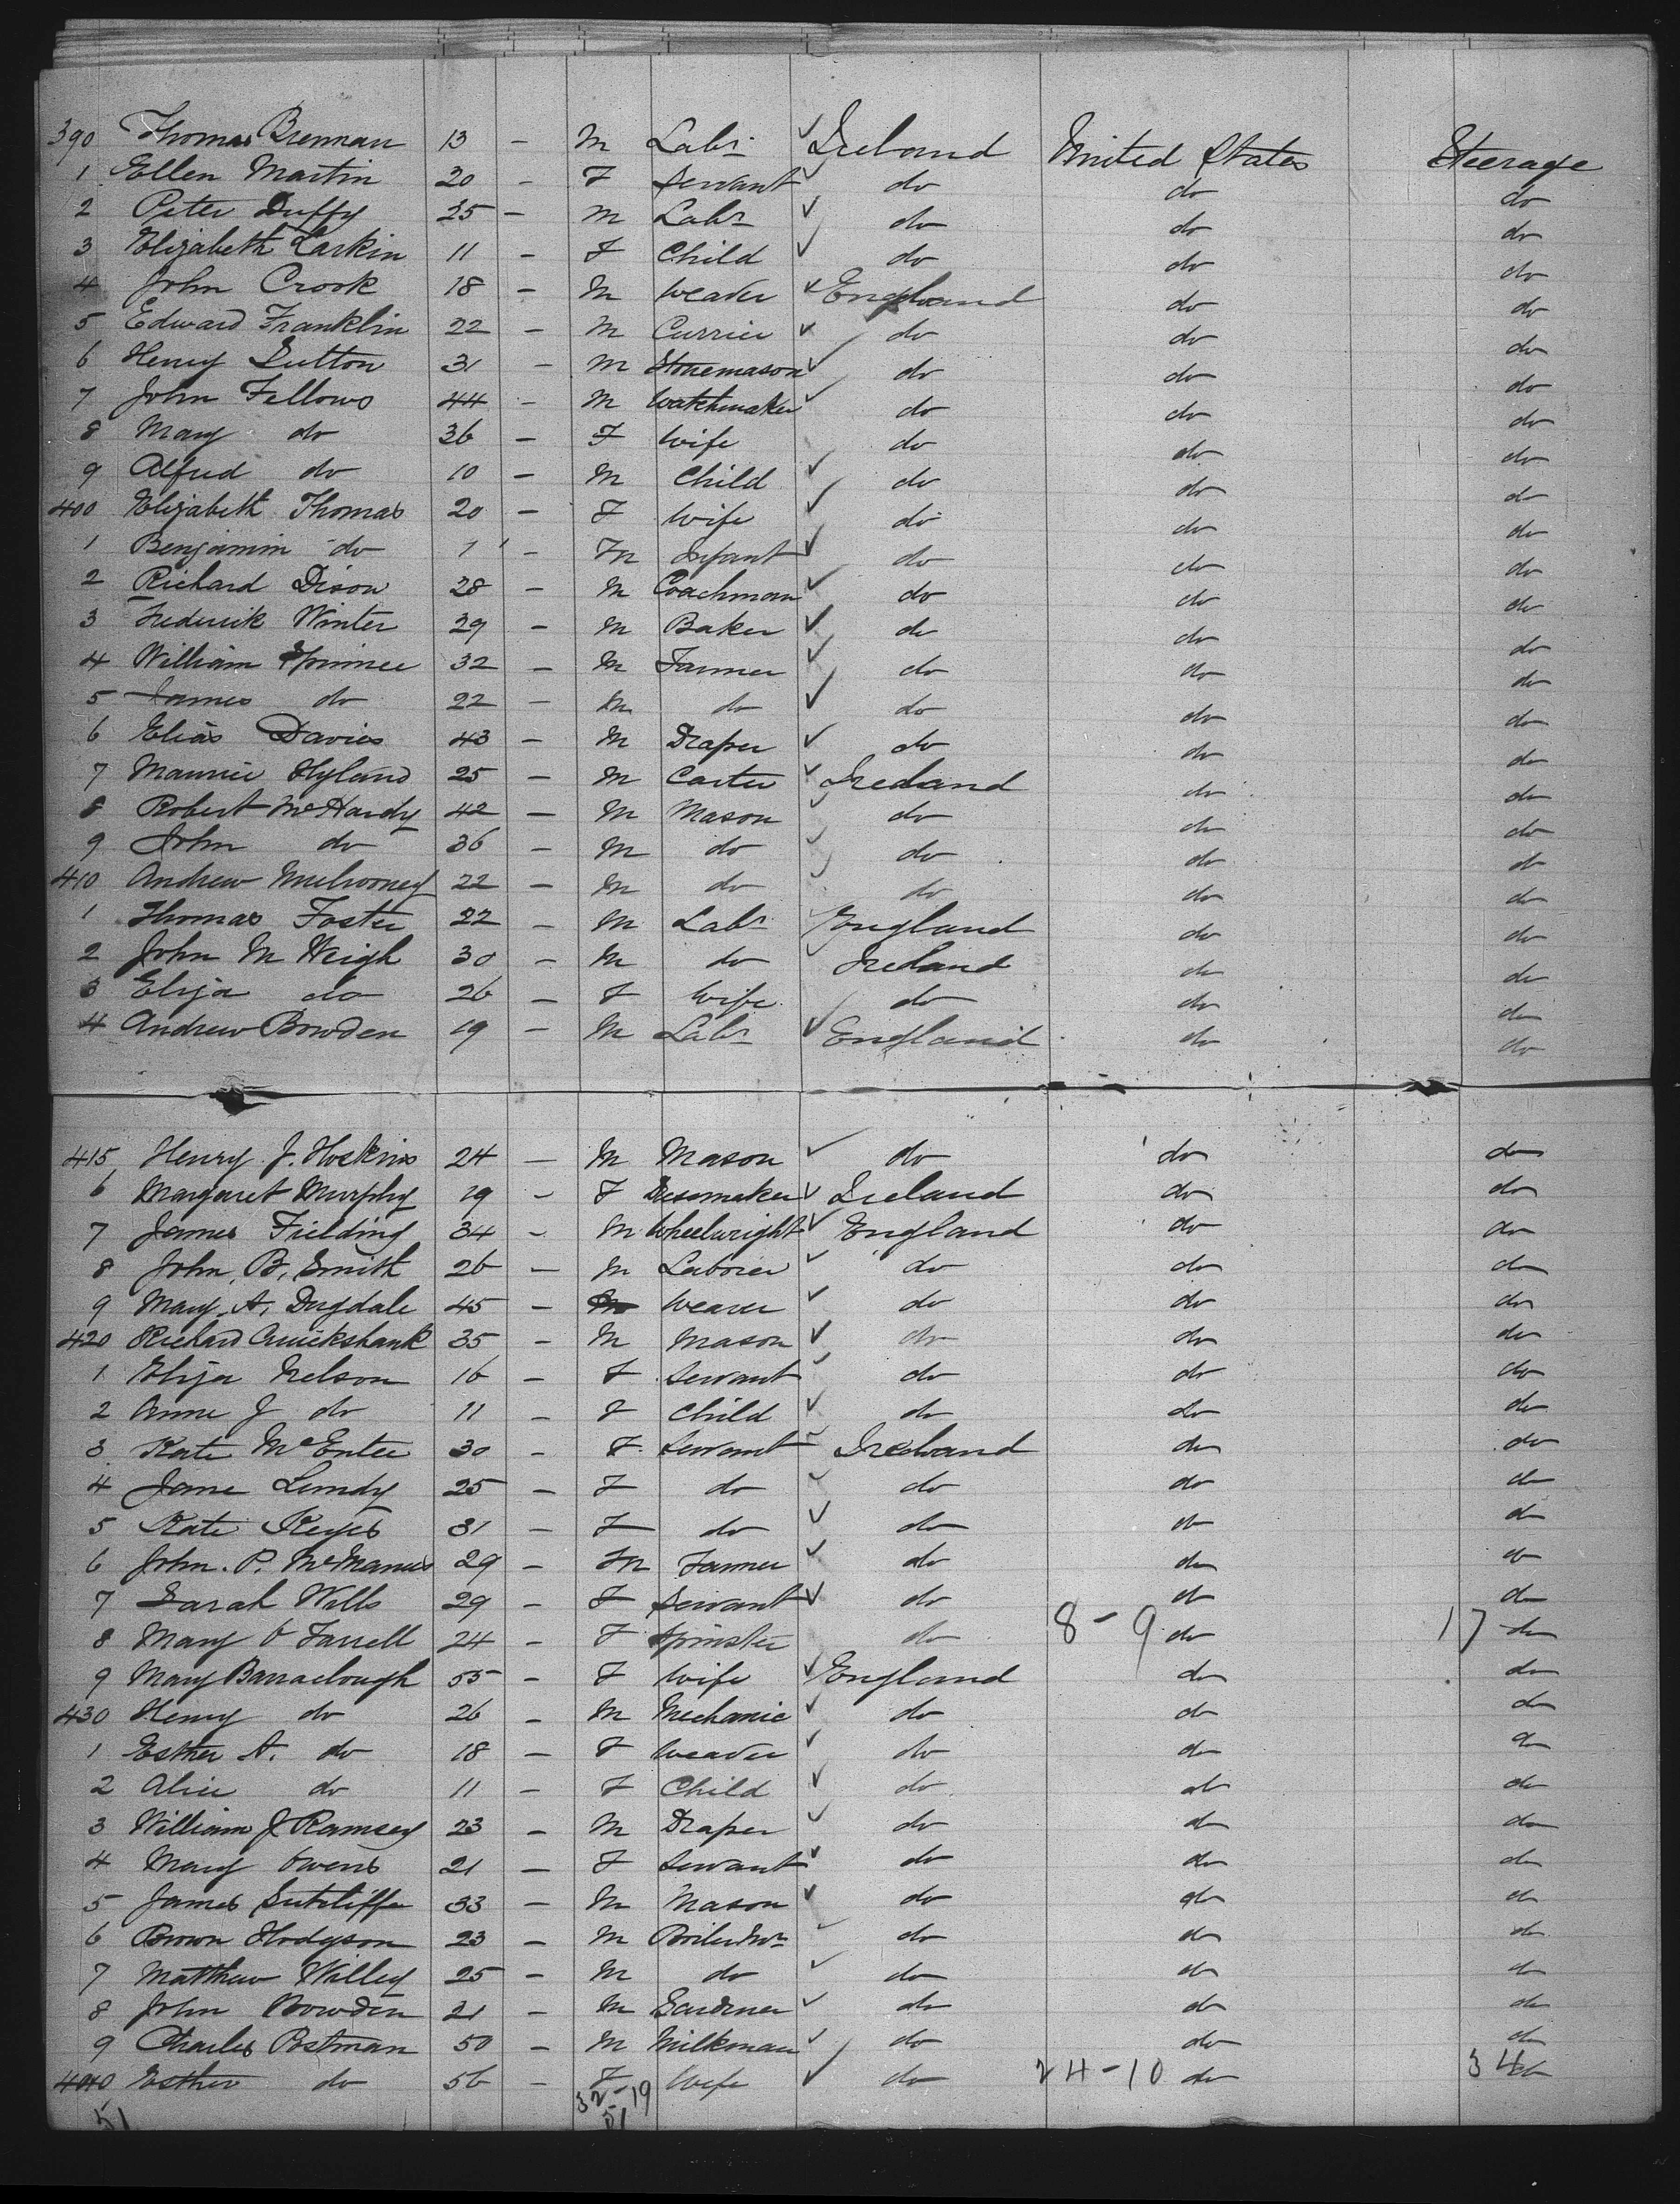 390 Thomas Brennan 13 - M Labr ✓ Ireland United States Steerage
1 Ellen Martin 20 - F Servant ✓ do do do
2 Peter Duffy 25 - M Labr ✓ do do do
3 Elizabeth Larkin 11 - F Child ✓ do do do
4 John Crook 18 - M Weaver ✓ England do do
5 Edward Franklin 22 - M Currier ✓ do do do
6 Henry Sutton 31 - M Stonemason ✓ do do do
7 John Fellows 44 - M Watchmaker ✓ do do do
8 Mary do 36 - F Wife do do do
9 Alfred do 10 - M Child ✓ do do do
400 Elizabeth Thomas 20 - F Wife ✓ do do do
1 Benjamin do 1 - M Infant ✓ do do do
2 Richard Dixon 28 - M Coachman ✓ do do do
3 Frederick Winter 29 - M Baker ✓ do do do
4 William 32 - M Farmer ✓ do do do
5 James do 22 - M do ✓ do do do
6 Elias Davies 43 - M Draper ✓ do do do
7 Maurice Hyland 25 - M Carter ✓ Ireland do do
8 Robert McHardy 42 - M Mason ✓ do do do
9 John do 36 - M do ✓ do do do
410 Andrew Mulrooney 22 - M do ✓ do do do
1 Thomas Foster 22 - M Labr England do do
2 John M Weigh 30 - M do Ireland do do
3 Eliza do 26 - F Wife do do do
4 Andrew Bowden 19 - M Labr ✓ England do do
415 Henry J. Hoskins 24 - M Mason ✓ do do do
6 Margaret Murphy 19 - F Dressmaker ✓ Ireland do do
7 James Fielding 34 - M Wheelwright ✓ England do do
8 John B. Smith 26 - M Laborer ✓ do do do
9 Mary A. Dugdale 45 - Weaver ✓ do do do
420 Richard Cruickshank 35 - M Mason ✓ do do do
1 Eliza Nelson 16 - F Servant ✓ do do do
2 Anne J do 11 - F Child ✓ do do do
3 Kate McEntee 30 - F Servant ✓ Ireland do do
4 Jane Lundy 25 - F do ✓ do do do
5 Kate Keyes 31 - F do ✓ do do do
6 John. P. McManus 29 - M Farmer ✓ do do do
7 Sarah Wills 29 - F Servant ✓ do do do
8 Mary O Farrell 24 - F Spinster do 8-9 do 17 do
9 Mary Barraclough 55 - F Wife ✓ England do do
430 Henry do 26 - M Mechanic ✓ do do do
1 Esther A. do 18 - F Weaver ✓ do do do
2 Alice do 11 - F Child ✓ do do do
3 William J Ramsey 23 - M Draper ✓ do do do
4 Mary Owens 21 - F Servant ✓ do do do
5 James Sutcliffe 33 - M Mason ✓ do do do
6 Brown Hodgson 23 - M Boiler Mr ✓ do do do
7 Matthew Willey 25 - M do ✓ do do do
8 John Bowden 21 - M Gardener ✓ do do do
9 Charles Postman 50 - M Milkman ✓ do do do
440 Esther do 56 - F Wife ✓ do 24-10 do 34 do
51 32-19
51